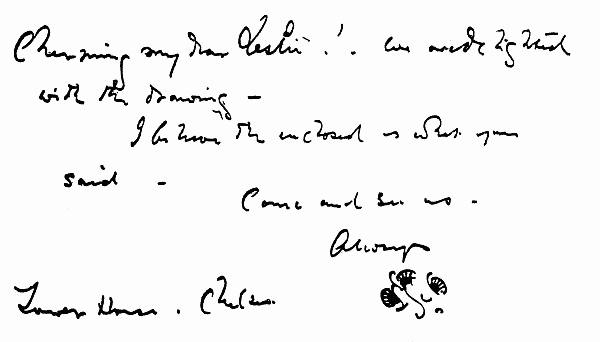 Charming my dear Leslie!. we are delighted
with the drawing –
I believe the enclosed is what you
said –
Come and see us –
Always
Tower House. Chelsea